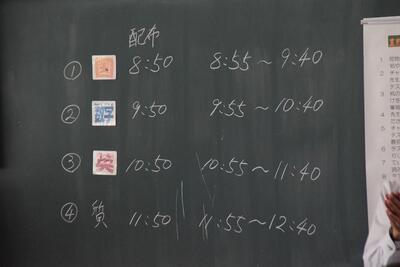 配布
① 8:50 8:55～9:40
② 数学 9:50 9:55～10:40
③ 英 10:50 10:55～11:40
④ 質 11:50 11:55～12:40